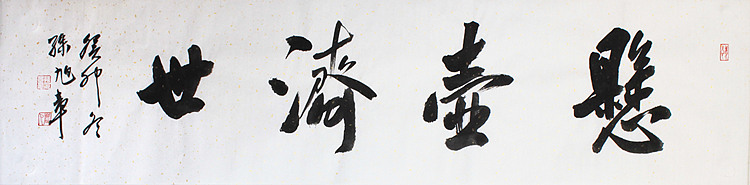 懸壺濟世
癸卯冬
孫旭章